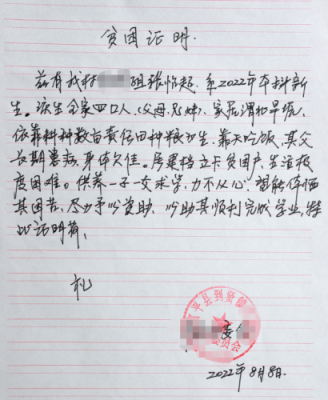 贫困证明
兹有我村 组张怡起，系2022年本科新
生。该生全家四口人（父母，兄妹），家居渭和旱塬，
依靠种种数亩责任田种粮为生，靠天吃饭，其父
长期患病，身体欠佳。居案档立卡贫困户，生活极
度困难。供养一子一女求学，力不从心，望能体恤
其困苦，尽力予以资助，以助其顺利完成学业，特
此证明前。
礼
平县到贤镇
委
委员会
2022年8月8日.